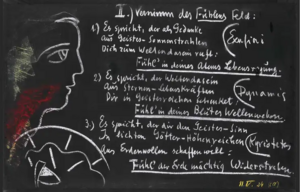 II.) Vernimm des Fühlens Feld:
1) Es spricht, der als Gedanke
Aus Geistes-Sonnenstrahlen
Dich zum Weltendasein ruft:
Fühl' in deines Atems Lebensregung.
2) Es spricht, der Weltendasein
Aus Sternen-Lebenskräften
Dir in Geistesreichen schenket:
Fühl' in deines Blutes Wellenweben.
3) Es spricht, der dir den Geistes-Sinn
In lichten Götter-Höhenreichen
Aus Erdenwollen schaffen will:
Fühl' der Erde mächtig Widerstreben
Dynamis
Kyriotetes